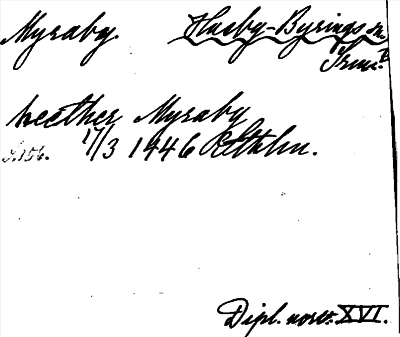 Myraby. Husby-Byrings sn.
Trun.
neether Myraby
S. 156. 17/3 1446 Sthlm.
Dipl. norv. XVI.